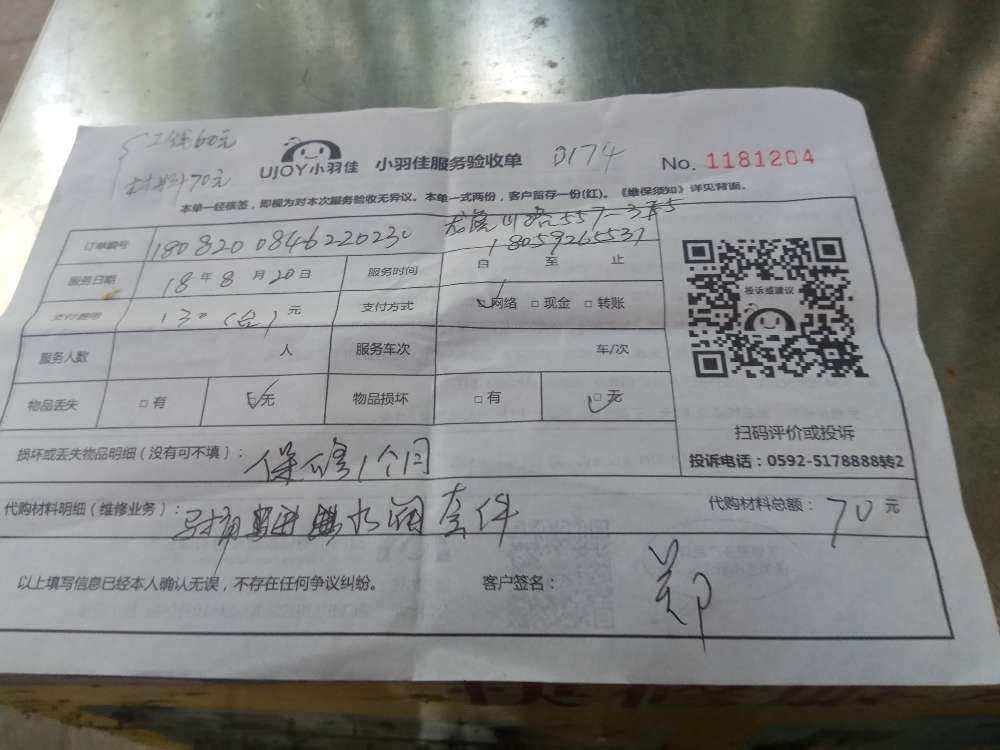 工钱60元
材料70元
UJOY小羽佳 小羽佳服务验收单 0174 No. 1181204
本单一经核签,即视为对本次服务验收无异议。本单一式两份,客户留存一份(红)。《维保须知》详见背面。
订单编号 1808200846220230 557-3 5
18059265537
服务日期 18年8月20日 服务时间 自 至 止
支付费用 130(合)元 支付方式 □网络 □现金 □转账
投诉或建议
服务人数 人 服务车次 车/次
物品丢失 □有 □无 物品损坏 □有 □无
扫码评价或投诉
投诉电话:0592-5178888转2
损坏或丢失物品明细(没有可不填): 保修1个月
代购材料明细(维修业务): 水阀套件 代购材料总额: 70元
以上填写信息已经本人确认无误,不存在任何争议纠纷。 客户签名: 郑